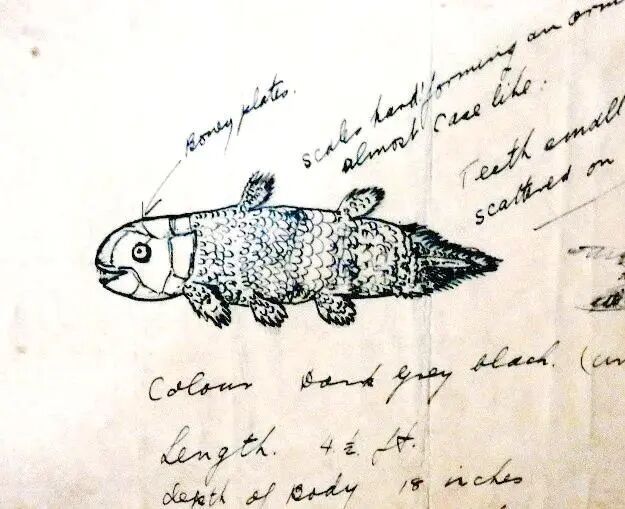 Boney plates.
Scales hard forming an
almost case like.
Teeth small
scattered on
Colour Dark grey black.
Length. 4½ ft.
depth of Body 18 inches